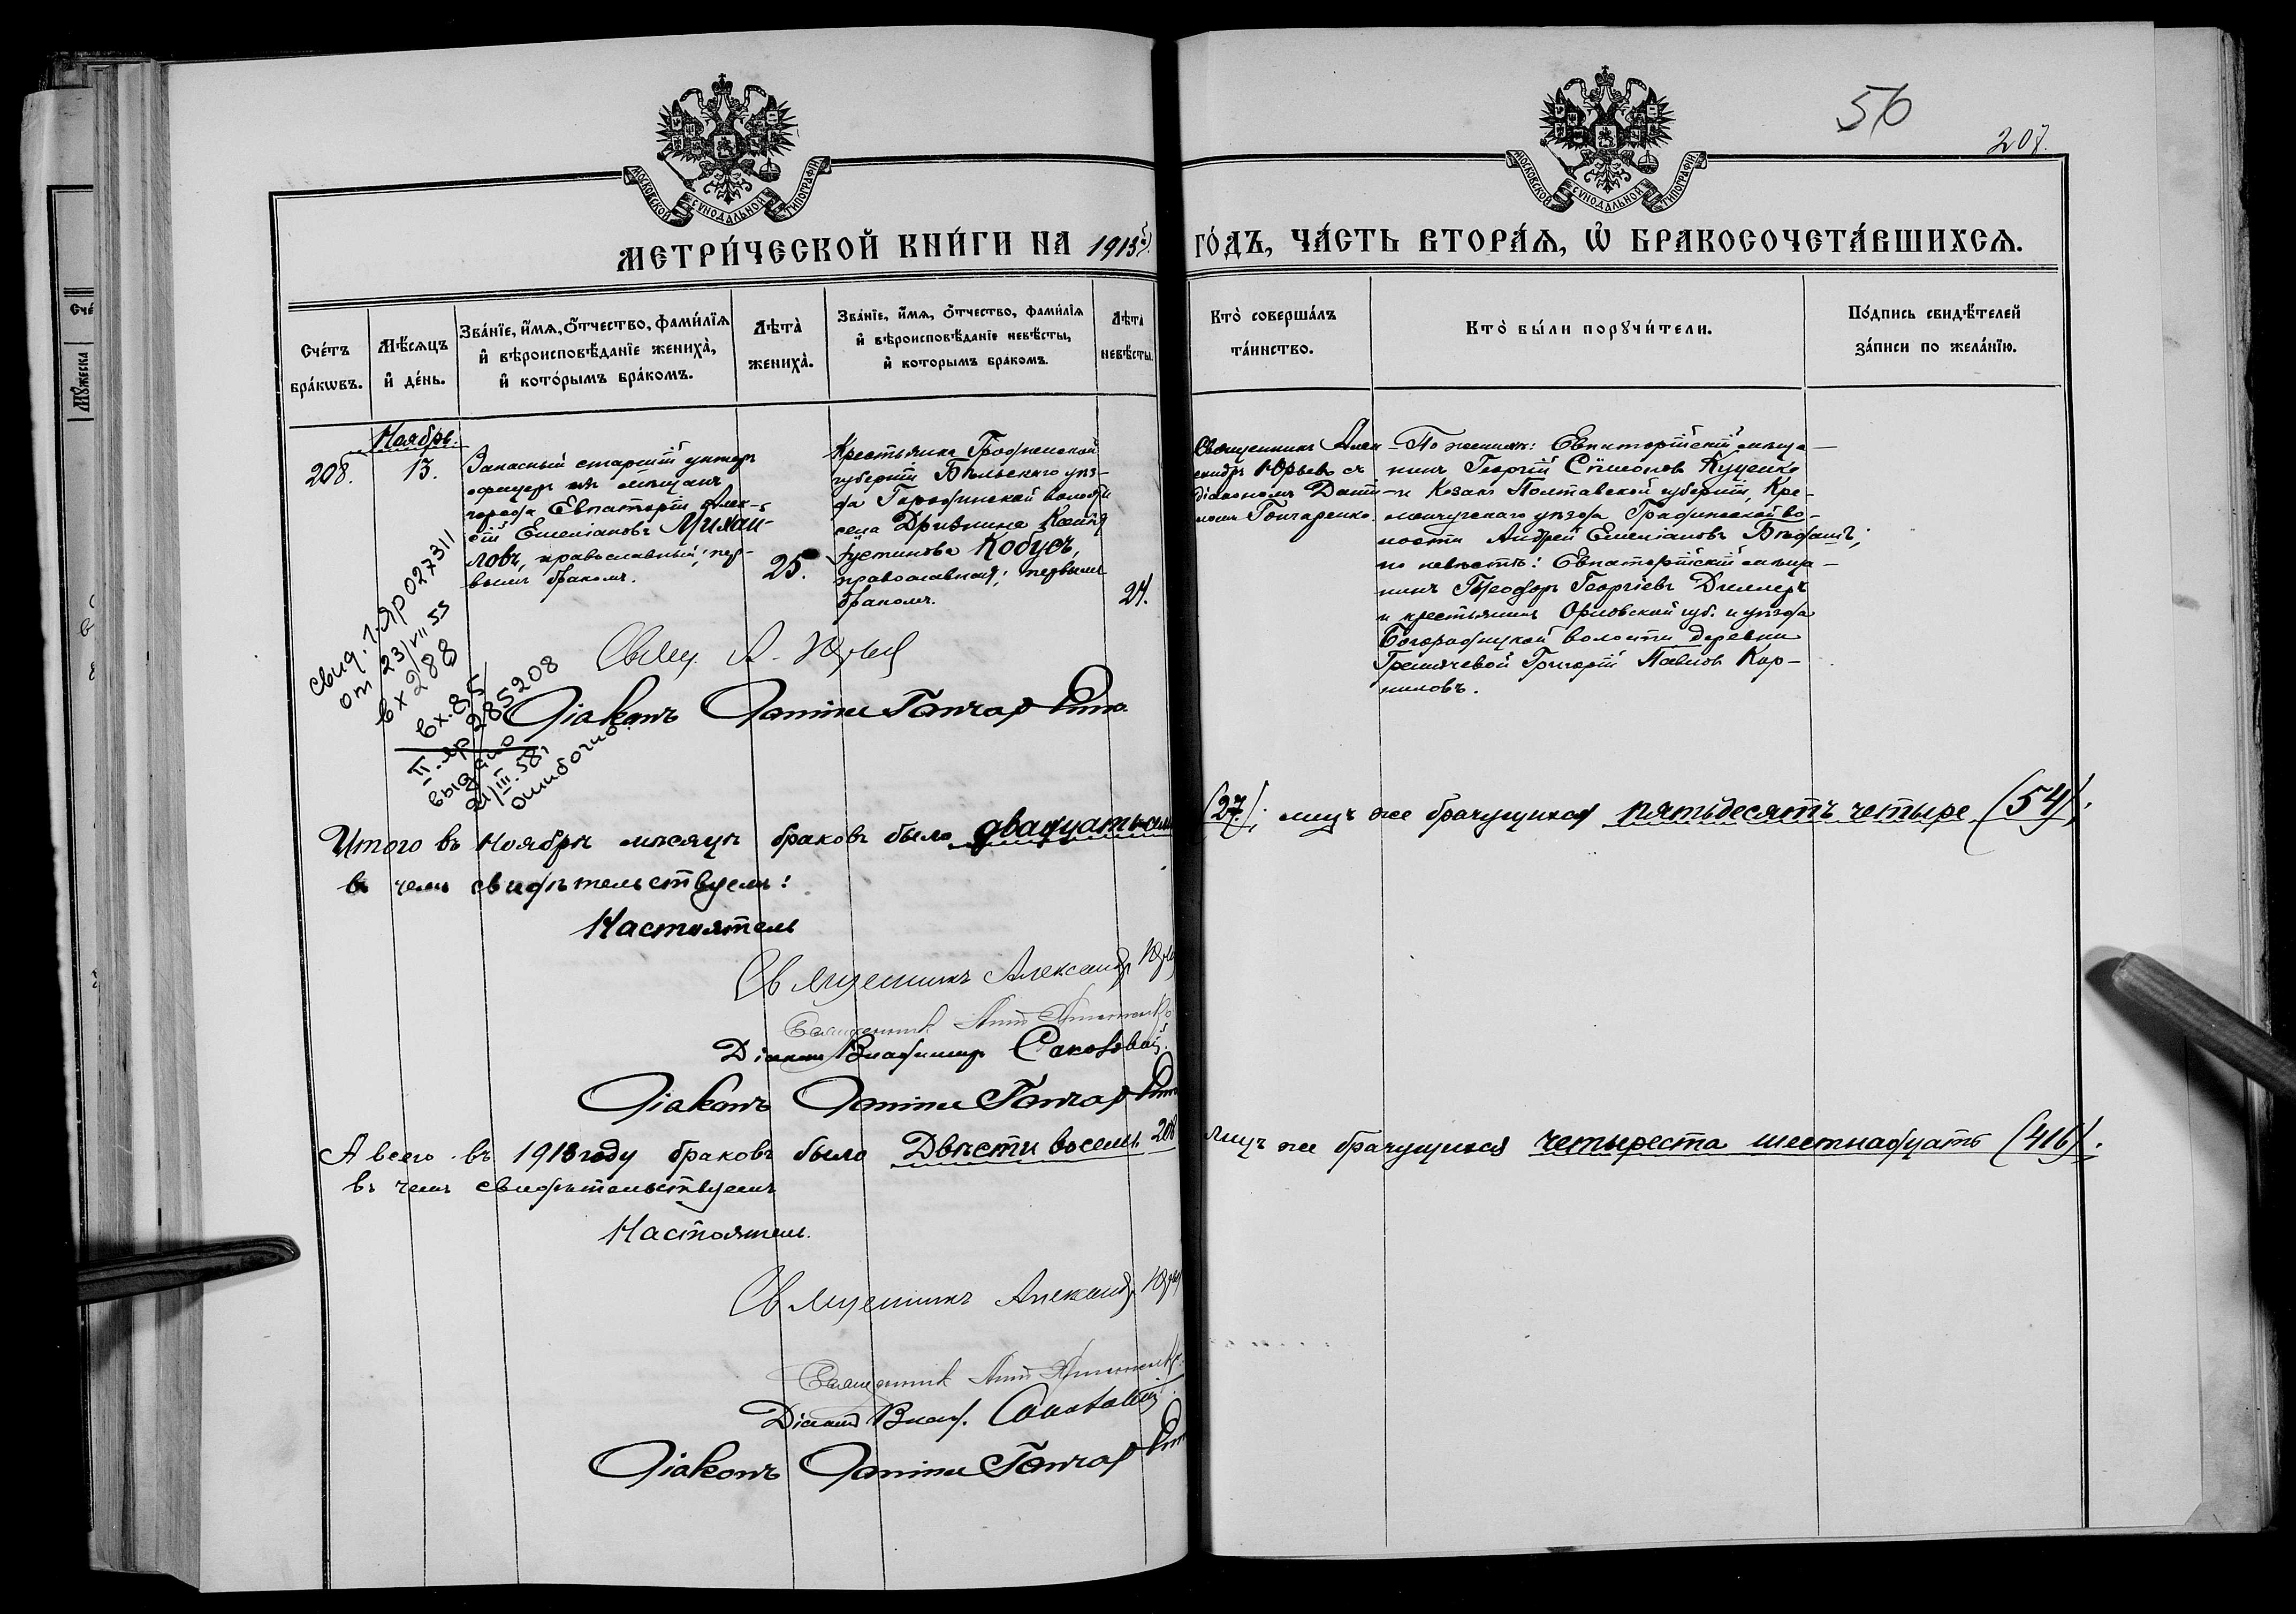 56
207.
МОСКОВСКОЙ СУНОДАЛЬНОЙ ТИПОГРАФІИ
МОСКОВСКОЙ СУНОДАЛЬНОЙ ТИПОГРАФІИ
МЕТРИ́ЧЕСКОЙ КНИ́ГИ НА 1913й
ГО́ДЪ, ЧА́СТЬ ВТОРА́Ѧ, Ѽ БРАКОСОЧЕТА́ВШИХСѦ.
Сче́тъ
бра́кѡвъ.
Мѣ́сяцъ
и҆ де́нь.
Зва́нїе, и҆́мѧ, Ѻ҆́тчество, фами́лїѧ
и҆ вѣроисповѣ́данїе жениха̀,
и҆ кото́рымъ бра́комъ.
Лѣта̀
жениха̀.
Зва́нїе, и҆́мѧ, ѻ҆́тчество, фами́лїѧ
и҆ вѣроисповѣ́данїе невѣ́сты,
и҆ которымъ бракомъ.
Лѣта
невѣ́сты.
Кто̀ соверша́лъ
та́инство.
Кто̀ бы́ли порꙋчи́тели.
По́дпись свидѣ́телей
за́писи по жела́нїю.
208.
Ноябрь.
13.
Запасный старшій унтеръ
офицеръ изъ мѣщанъ
города Евпаторіи Алек-
сѣй Емеліановъ Михай-
ловъ, православный; пер-
вымъ бракомъ.
25.
Крестьянка Гродненской
губерніи Бѣльскаго уѣз-
да Городисской волости
села
Іустинова Кобусъ,
православная; первымъ
бракомъ.
24.
Священникъ Алек-
сандръ Юрьевъ съ
діакономъ Дани-
ломъ Гончаренко.
По женихѣ: Евпаторійскій мѣща-
нинъ Георгій Сѵмеоновъ Куценко
и козакъ Полтавской губерніи, Кре-
менчугскаго уѣзда Градижской во-
лости Андрей Емеліановъ
по невѣстѣ: Евпаторійскій мѣща-
нинъ Ѳеодоръ Георгіевъ Диллеръ
и крестьянинъ Орловской губ. и уѣзда
Богородицкой волости деревни
Гремячевой Григорій Павловъ Кор-
ниловъ.
свид. 1-ЯР 027311
от 23/VII 55
вх 288
вх. 85/
II-ЯР 285208
выдано
21/III.58г
ошибочно.
Свящ. А. Юрьевъ
Діаконъ Даніилъ Гончаренко.
Итого въ Ноябрѣ мѣсяцѣ браковъ было двадцать семь
(27); лицъ же брачущихся пятьдесятъ четыре (54);
въ чемъ свидѣтельствуемъ:
Настоятель
Священникъ Александръ Юрьевъ
Священникъ
Діаконъ Владимиръ
Діаконъ Даніилъ Гончаренко
А всего въ 1913 году браковъ было Двѣсти восемь 208
лицъ же брачущихся четыреста шестнадцать (416);
въ чемъ свидѣтельствуемъ
Настоятель.
Священникъ Александръ Юрьевъ
Священникъ
Діаконъ Влад.
Діаконъ Даніилъ Гончаренко